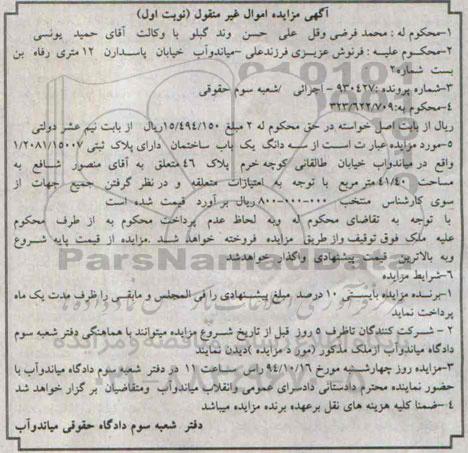 آگهی مزایده اموال غیر منقول (نوبت اول)
۱-محکوم له : محمد فرضی وقل علی حسن وند گبلو با وکالت آقای حمید یونسی
۲-محکوم علیه : فرنوش عزیزی فرزندعلی -میاندوآب خیابان پاسداران ۱۲ متری رفاه بن
بست شماره۲
۳-شماره پرونده :۹۳۰۴۲۷ - اجرائی /شعبه سوم حقوقی
۴-محکوم به:۳۲۳/۶۲۲/۷۰۹
ریال از بابت اصل خواسته در حق محکوم له ۲ مبلغ ۱۵/۴۹۴/۱۵۰ریال از بابت نیم عشر دولتی
۵-مورد مزایده عبارت است از سه دانگ یک باب ساختمان دارای پلاک ثبتی ۱/۲۰۸۱/۱۵۰۰۷
واقع در میاندواب خیابان طالقانی کوچه خرم پلاک ۴۶ متعلق به آقای منصور شافع به
مساحت ۴۱/۴۰ متر مربع با توجه به امتیازات متعلقه و در نظر گرفتن جمیع جهات از
سوی کارشناس منتخب ۸۰۰-۰۰۰-۰۰۰ ریال بر آورد قیمت شده است
با توجه به تقاضای محکوم له وبه لحاظ عدم پرداخت محکوم به از طرف محکوم
علیه ملک فوق توقیف واز طریق مزایده فروخته خواهد شد .مزایده از قیمت پایه شروع
وبه بالاترین قیمت پیشنهادی واگذار خواهدشد
۶-شرایط مزایده
۱-برنده مزایده بایستی ۱۰ درصد مبلغ پیشنهادی را فی المجلس و مابقی را ظرف مدت یک ماه
پرداخت نماید
۲ - شرکت کنندگان تاظرف ۵ روز قبل از تاریخ شروع مزایده میتوانند با هماهنگی دفتر شعبه سوم
دادگاه میاندوآب ازملک مذکور (مور د مزایده )دیدن نمایند
۳-مزایده روز چهارشنبه مورخ ۹۴/۱۰/۱۶ راس ساعت ۱۱ در دفتر شعبه سوم دادگاه میاندوآب با
حضور نماینده محترم دادستانی دادسرای عمومی وانقلاب میاندوآب ومتقاضیان بر گزار خواهد شد
۴-ضمنا کلیه هزینه های نقل برعهده برنده مزایده میباشد
دفتر شعبه سوم دادگاه حقوقی میاندوآب
ParsNamadData